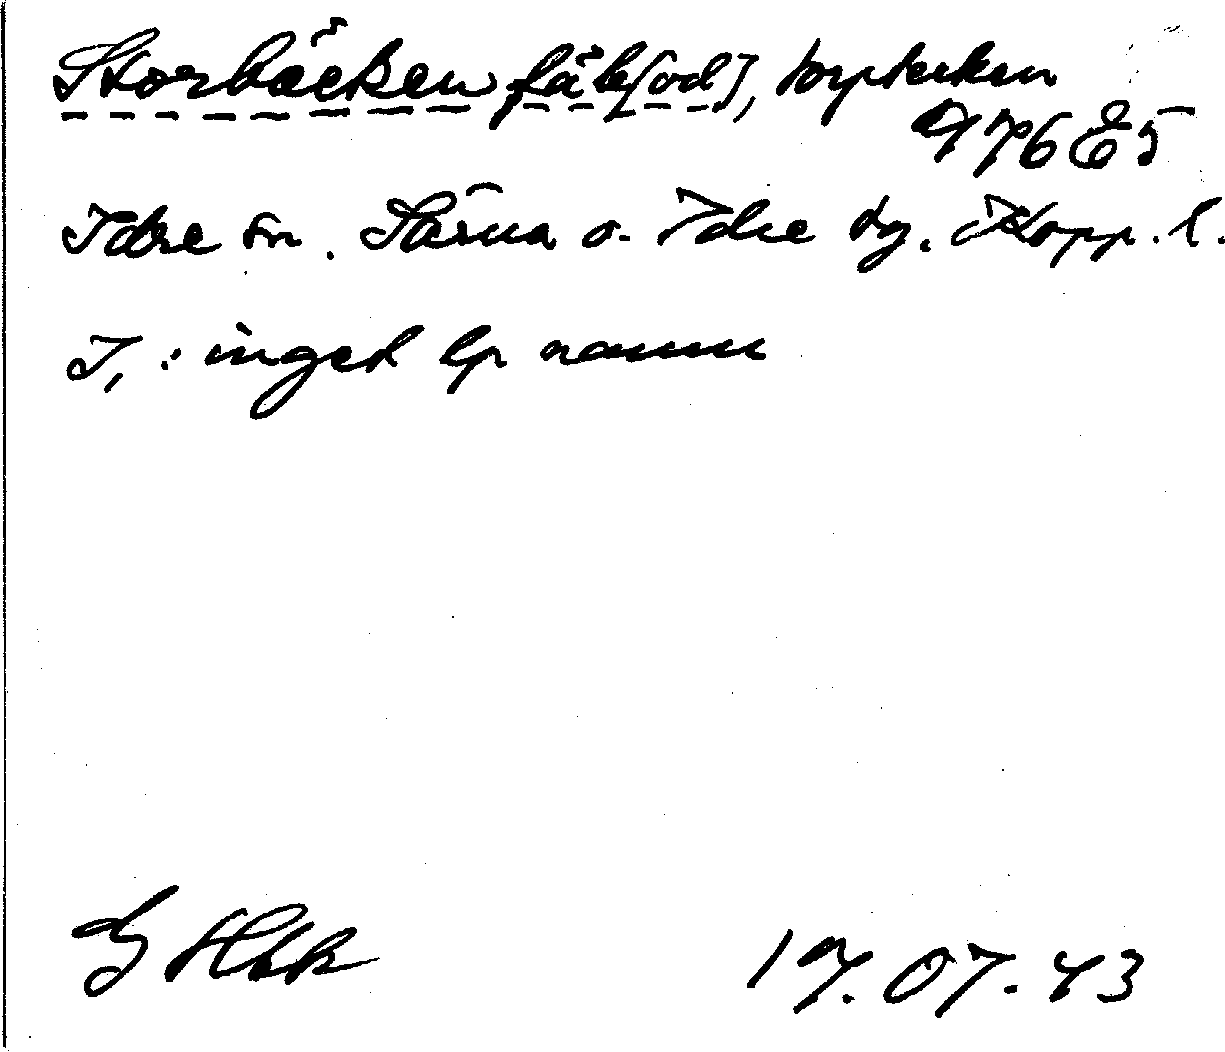 Storbäcken fäb[od], torptecken
976E5
Idre sn. Särna o. Idre tg. Kopp. l.
I, : inget lp namn
G Hbk 17.07.43